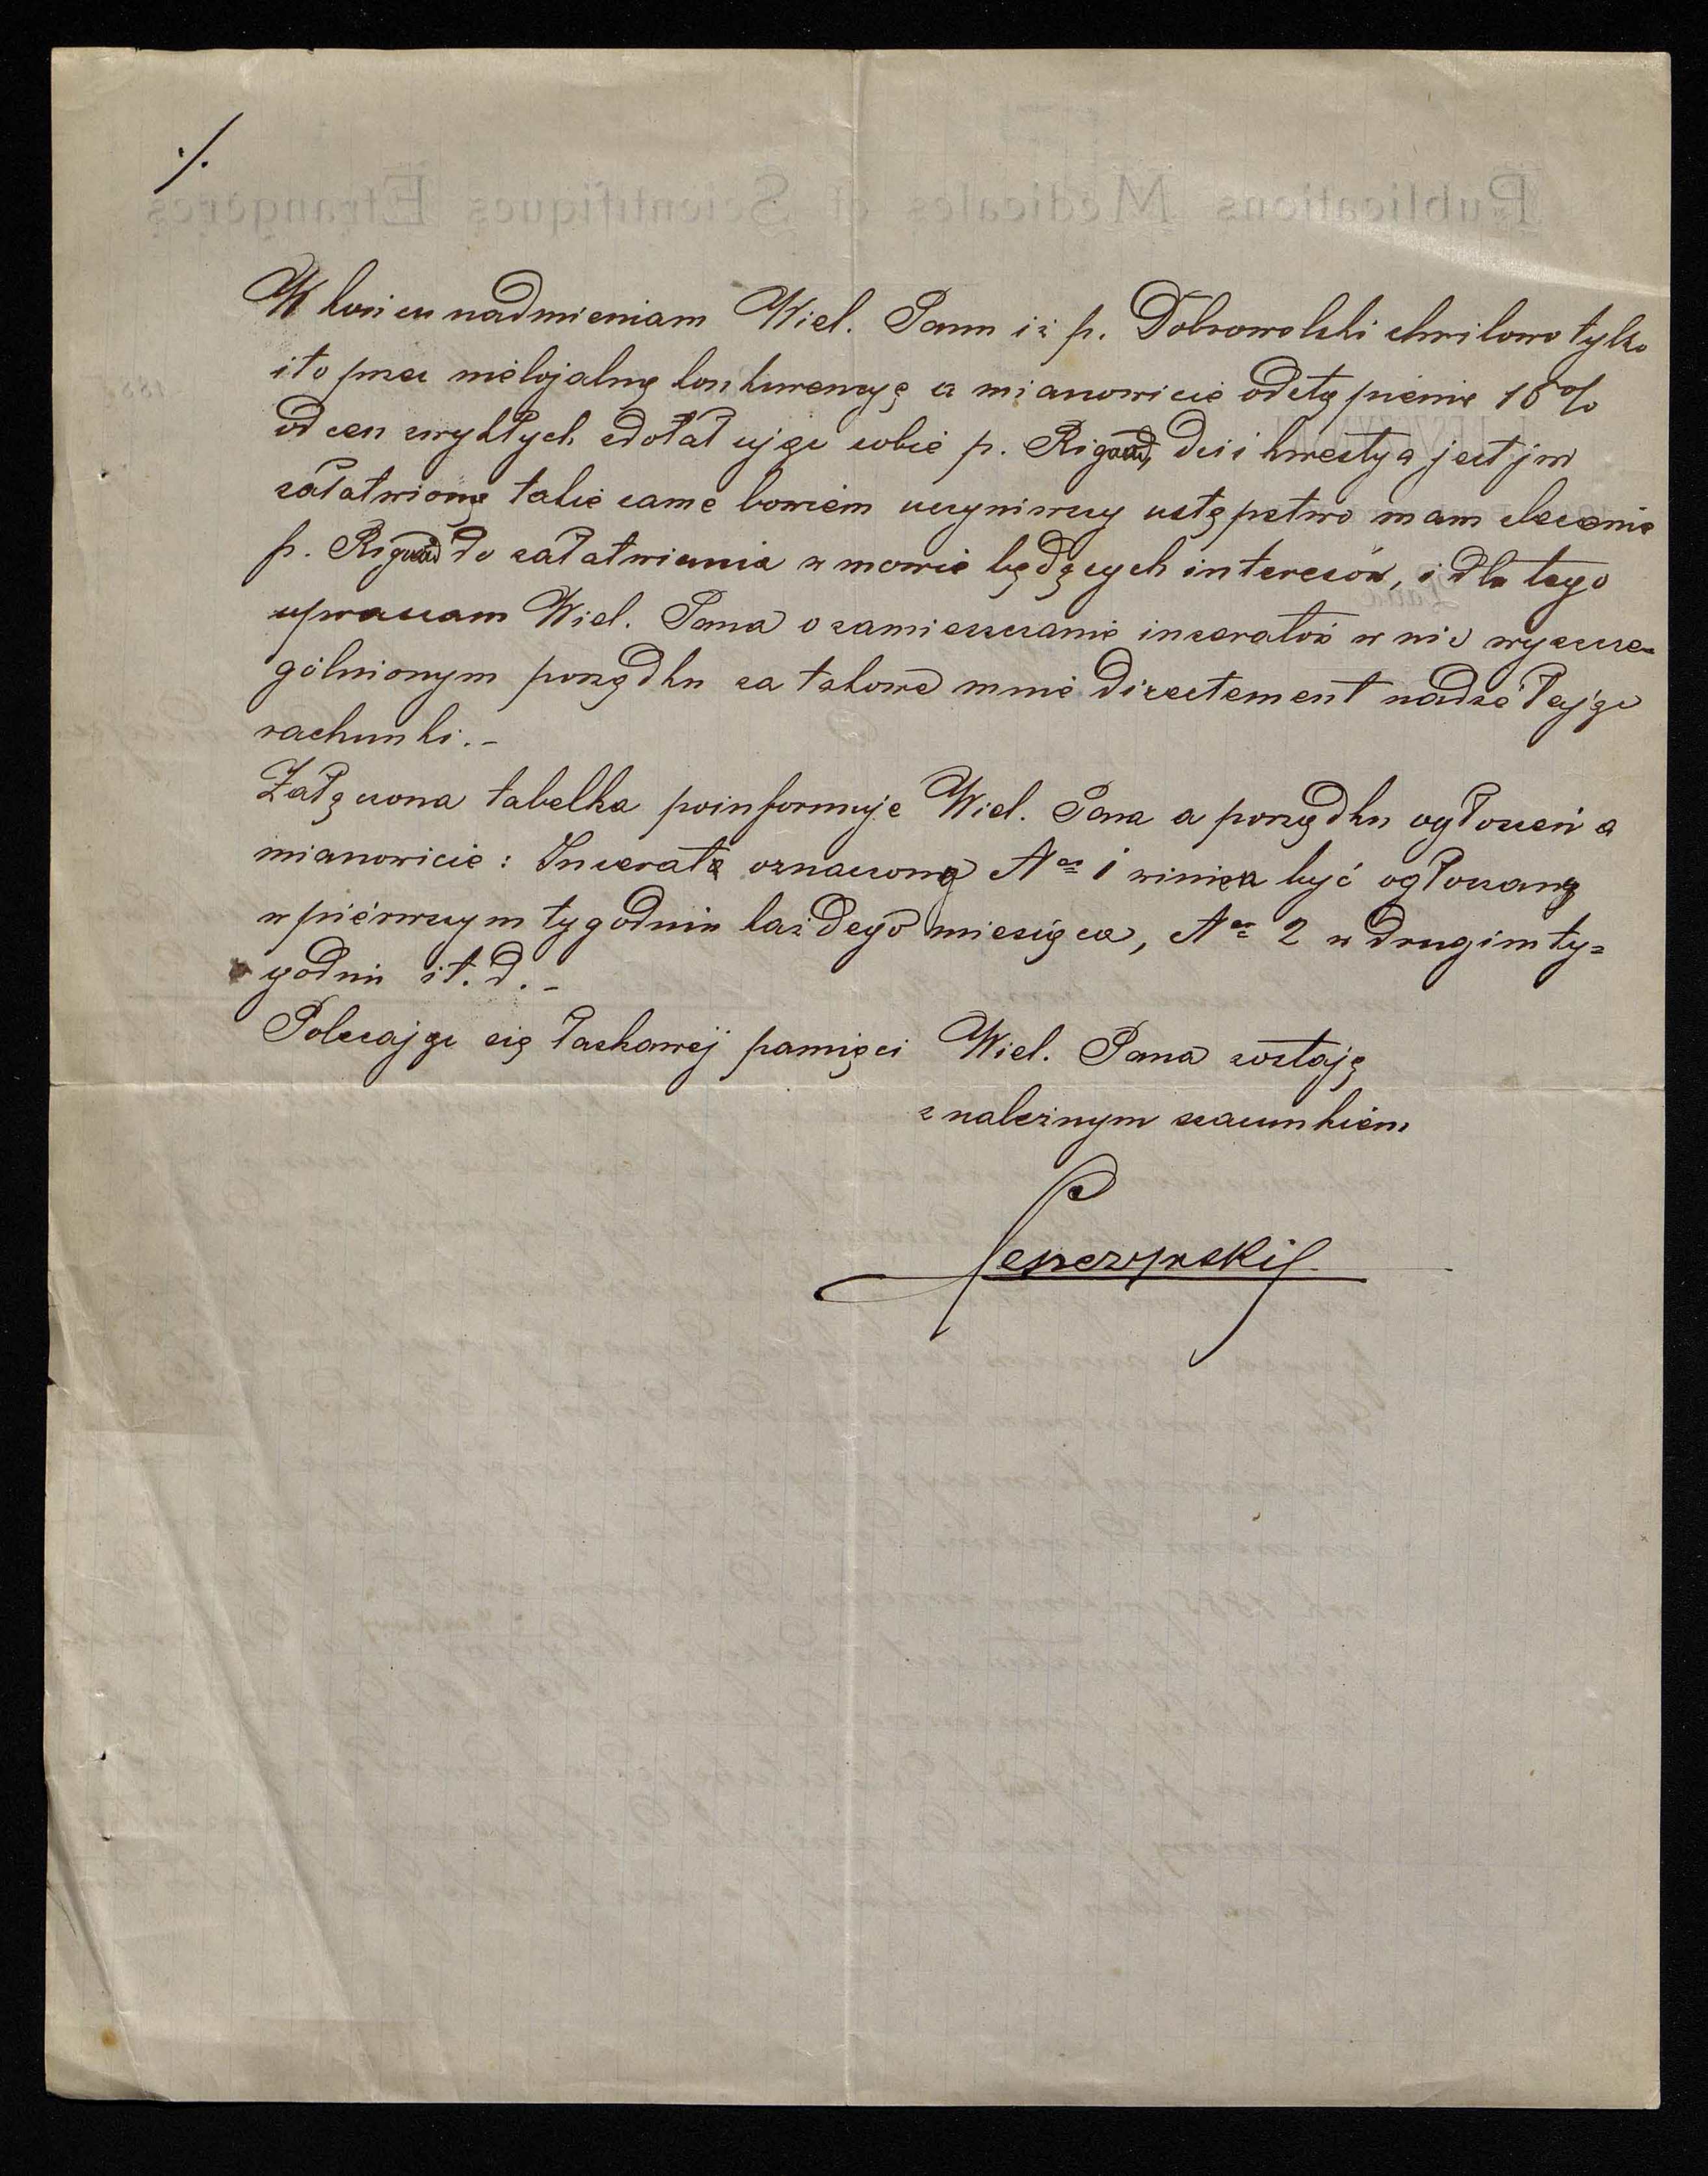 ./.
W końcu nadmieniam Wiel. Panu iż p. Dobrowolski chwilowo tylko
i to przez nielojalną konkurencyę a mianowicie odstąpienie 15%
od cen zwykłych zdołał ująć sobie p. Rigaud, dziś kwestya jest już
załatwioną takie same bowiem uczyniwszy ustępstwo mam zlecenie
p. Rigaud do załatwiania w mowie będących interesów, i dla tego
upraszam Wiel. Pana o zamieszczanie inseratów w niż wyszcze-
gólnionym porządku za takowe mnie directement nadsełając
rachunki.-
Załączona tabelka poinformuje Wiel. Pana o porządku ogłoszeń a
mianowicie: Inserata oznaczona No 1 winna być ogłoszaną
w piérwszym tygodniu każdego miesiąca, No 2 w drugim ty=
godniu i t. d.-
Polecając się łaskawéj pamięci Wiel. Pana zostaję
z należnym szacunkiem